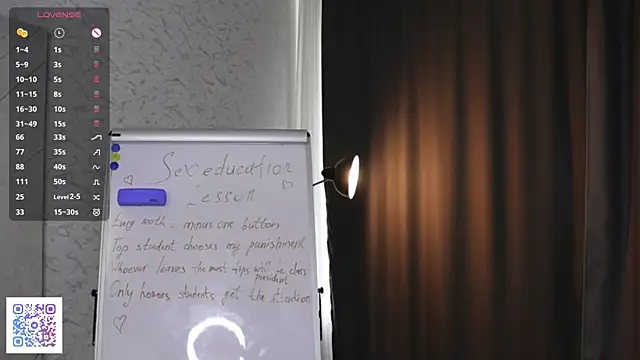 LOVENSE
1~4 1s
5~9 3s
10~10 5s
11~15 8s
16~30 10s
31~49 15s
66 33s
77 35s
88 40s
111 50s
25 Level 2-5
33 15~30s
Sex education
Lesson
Every = minus one button
Top student chooses my punishment
Whoever leaves the most tips will be class
president
Only honors students get the